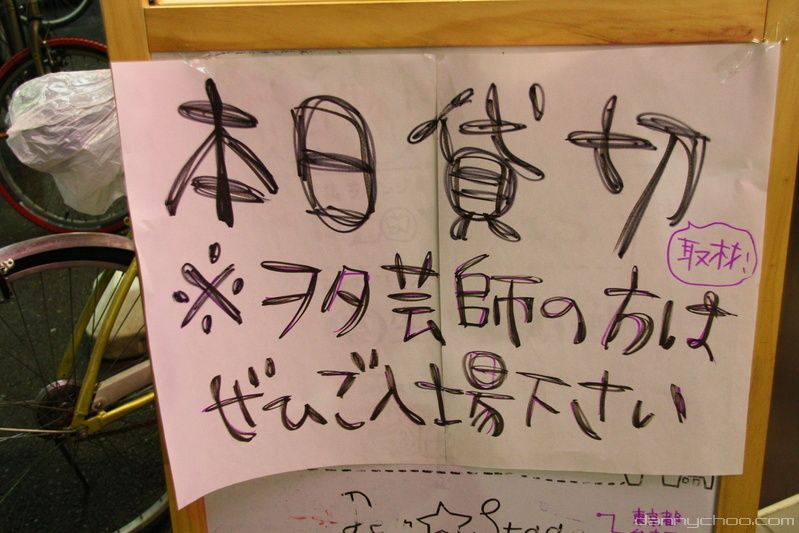 本日貸切
取材!
※ヲタ芸師の方は
ぜひご入場下さい
dannychoo.com